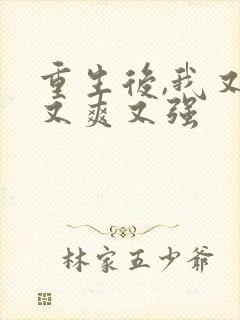 重生後,我又
又爽又强
林家五少爺